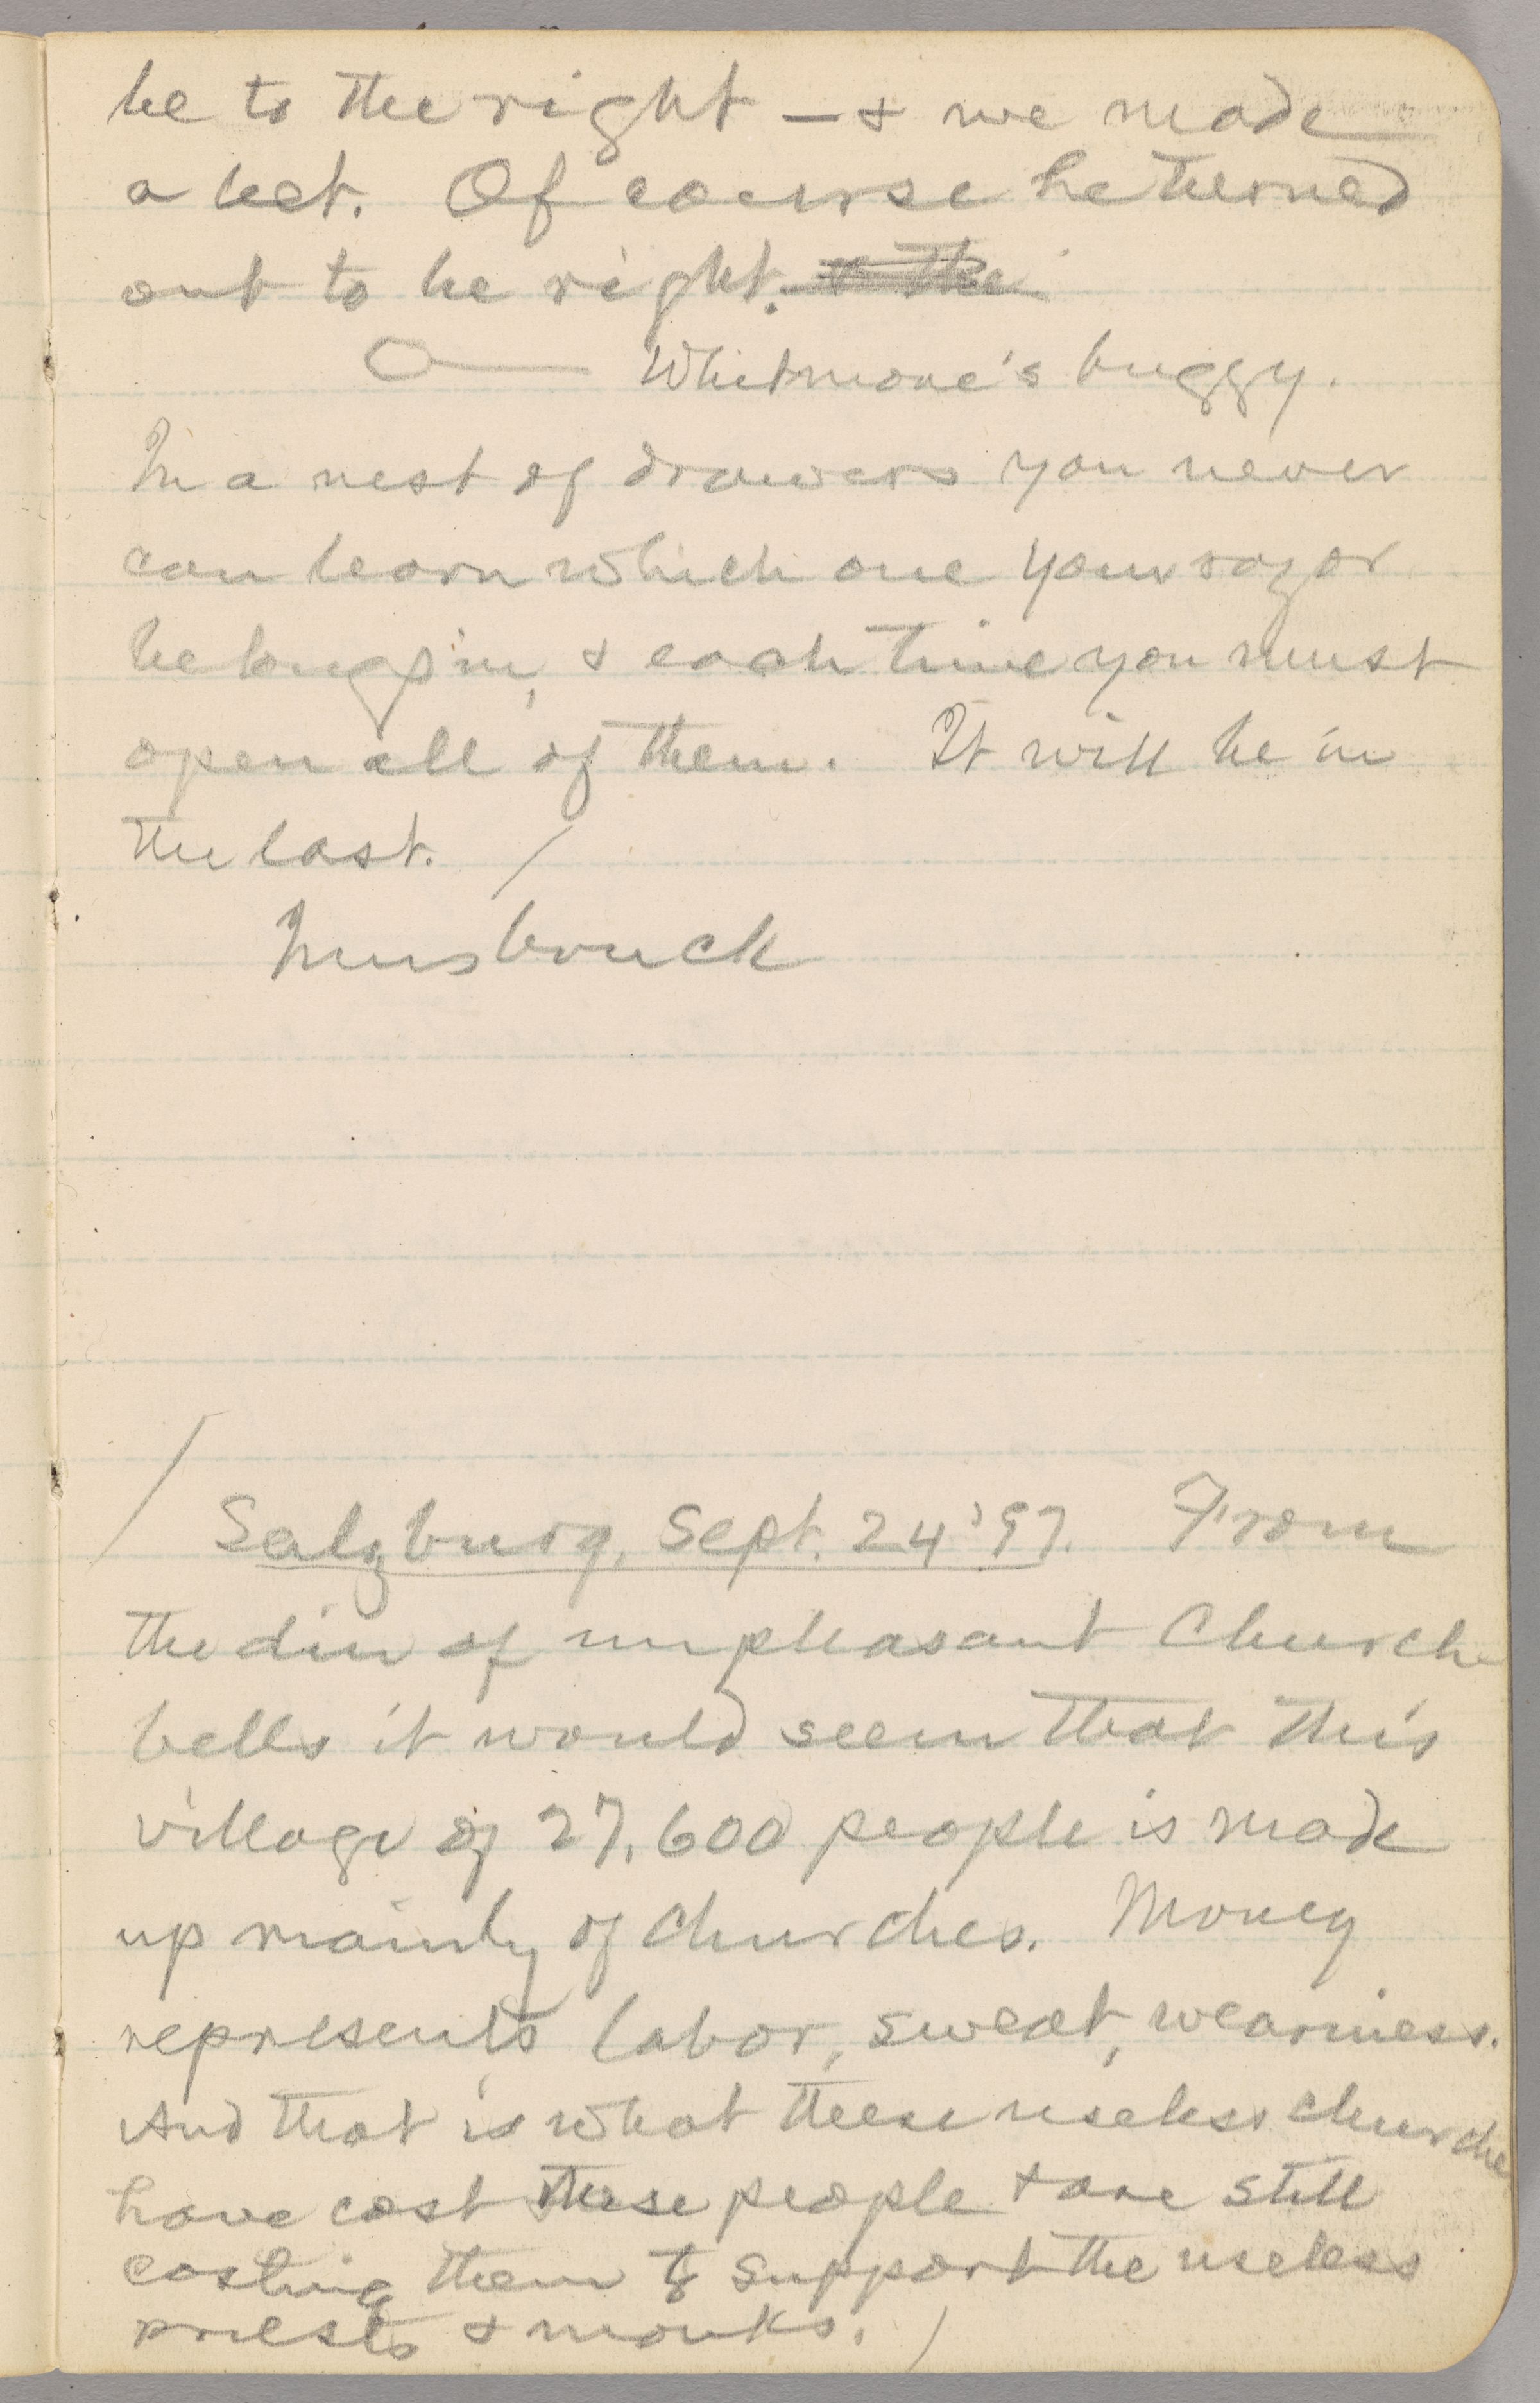 be to the right — & we made
a bet. Of course he turned
out to be right.
Whitmore's buggy.
In a nest of drawers you never
can learn which one your razor
belongs in, & each time you must
open all of them. It will be in
the last. /
Innsbruck
/
Salzburg, Sept. 24 '97. From
the din of unpleasant Church
bells it would seem that this
village of 27,600 people is made
up mainly of churches. Money
represents labor, sweat, weariness.
And that is what these useless churche
have cost these people & are still
costing them to support the useless
priests & monks. /